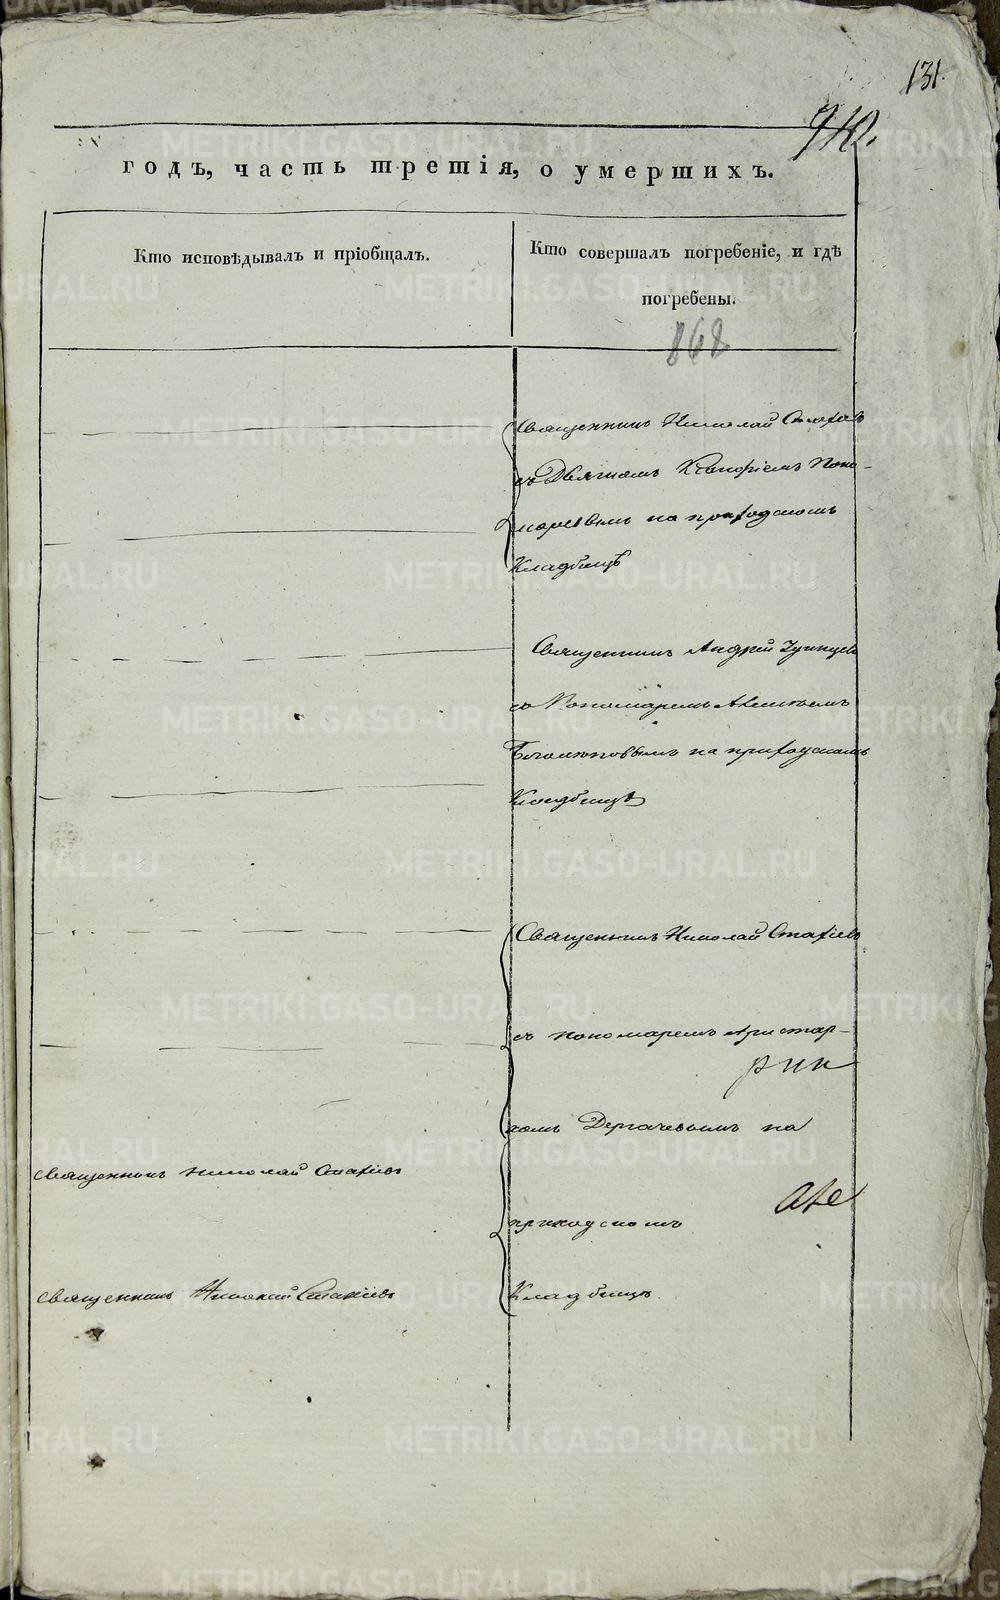 131.
940.
годъ, часть третія, о умершихъ.
Кто исповѣдывалъ и пріобщалъ.
Кто совершалъ погребеніе, и гдѣ
погребены.
868
Священникъ Николай Стахіевъ
съ Дьячкомъ Поно-
маревымъ на приходскомъ
Кладбищѣ
Священникъ Андрей
съ Пономаремъ Алексѣемъ
на приходскомъ
Кладбищѣ
Священникъ Николай Стахіевъ
съ пономаремъ Аристар-
хомъ Дергачевымъ на
Священникъ Николай Стахіевъ
приходскомъ
Священникъ Николай Стахіевъ
Кладбищѣ.
METRIKI.GASO-URAL.RU